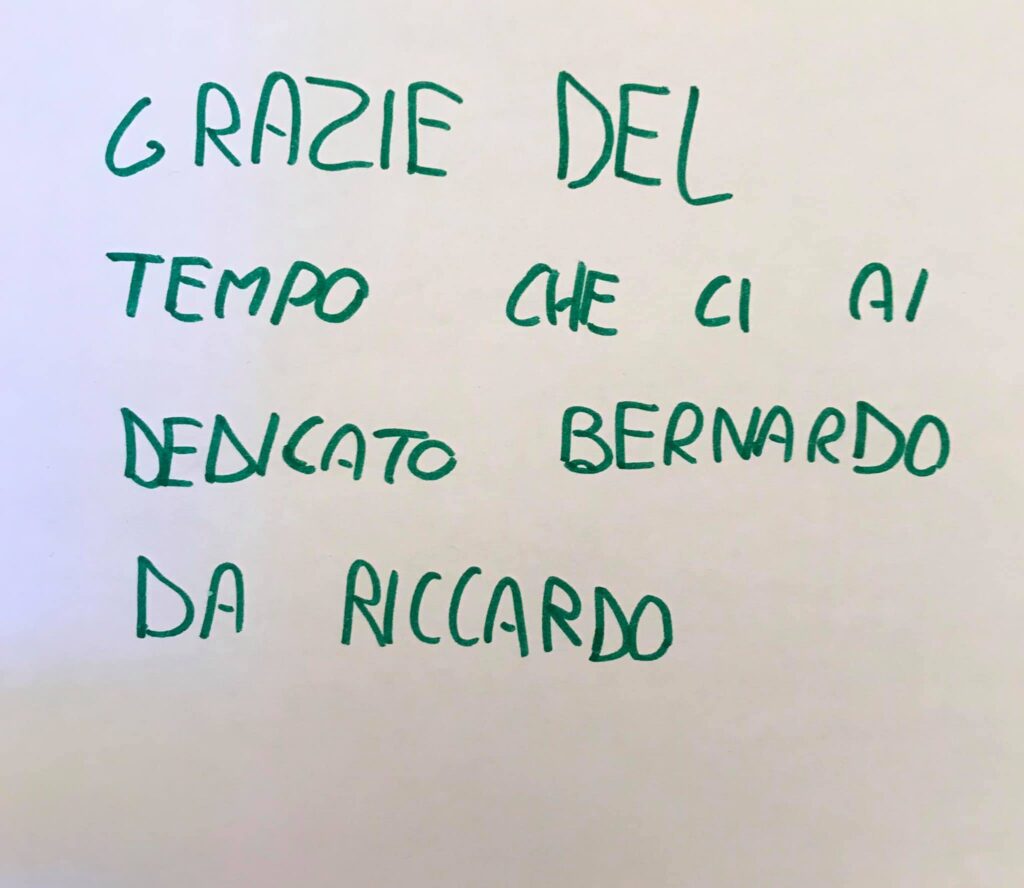 GRAZIE DEL
TEMPO CHE CI AI
DEDICATO BERNARDO
DA RICCARDO